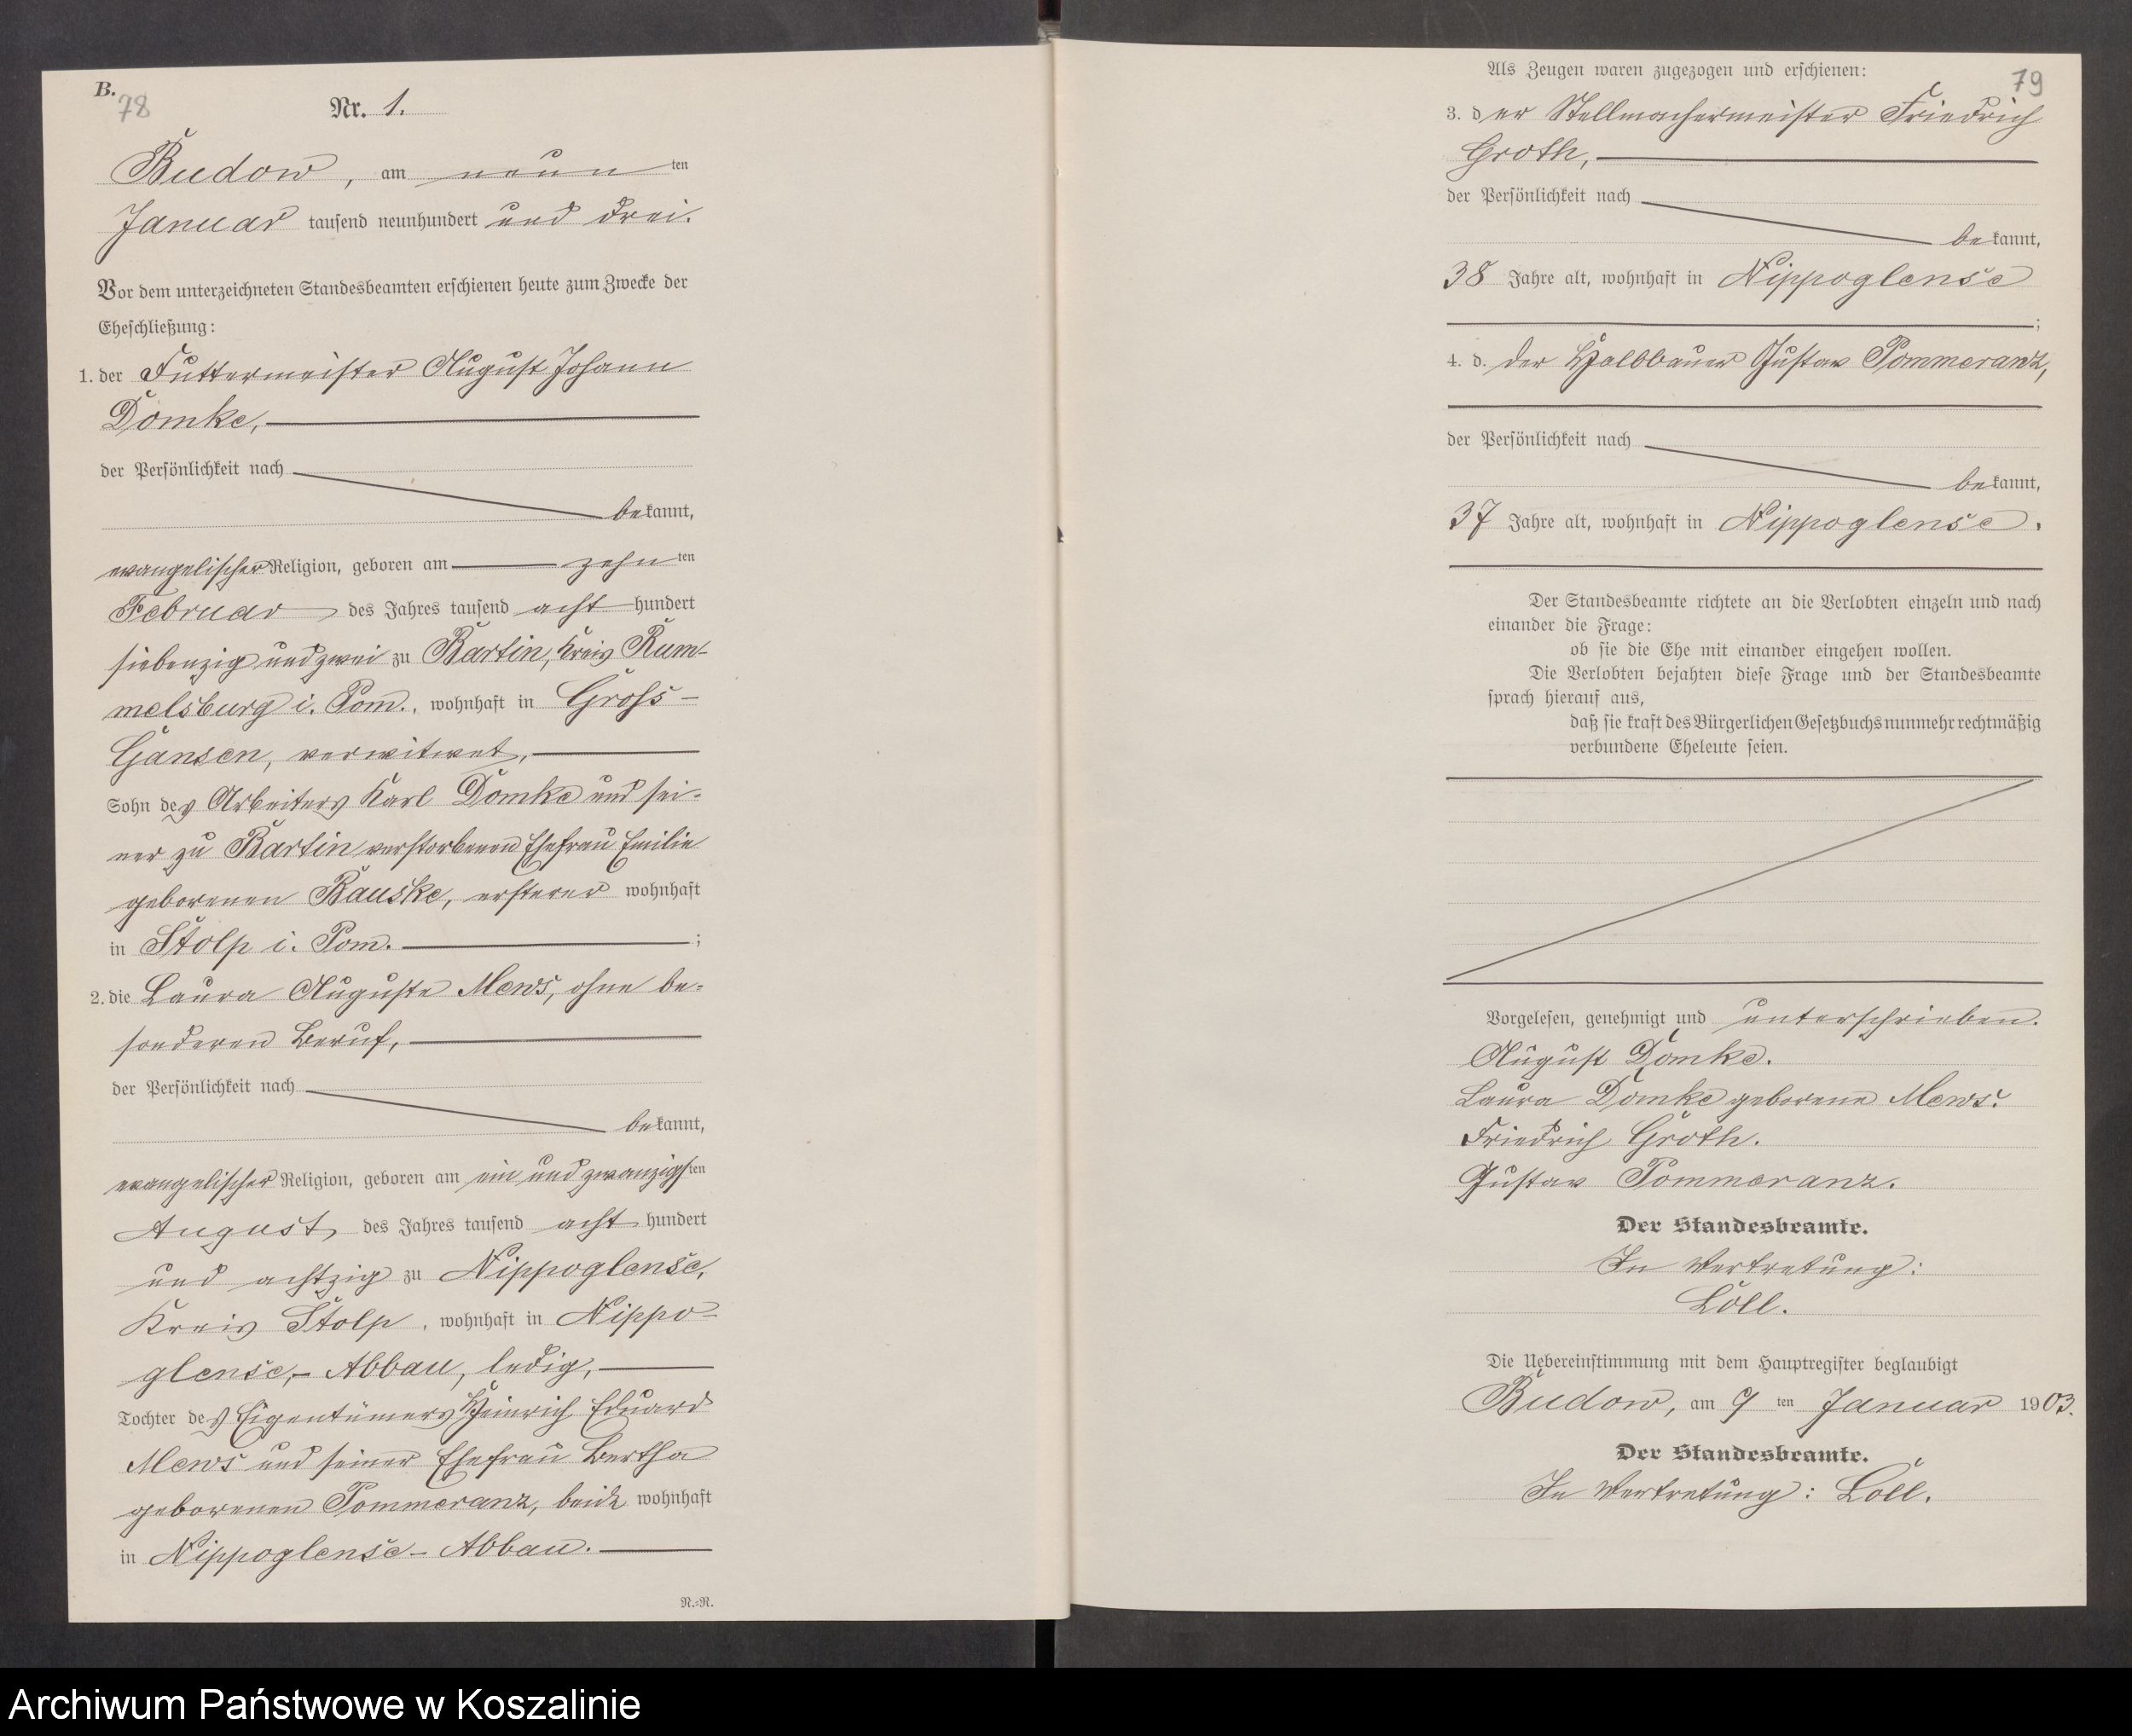 B.
78
Nr. 1.
Budow, am neunten
Januar tausend neunhundert und drei.
Vor dem unterzeichneten Standesbeamten erschienen heute zum Zwecke der
Eheschließung:
1. der Futtermeister August Johann
Domke,
der Persönlichkeit nach
bekannt,
evangelischer Religion, geboren am zehnten
Februar des Jahres tausend achthundert
siebenzig und zwei zu Bartin, Kreis Rum-
melsburg i. Pom., wohnhaft in Gross-
Gansen, verwitwet,
Sohn des Arbeiters Karl Domke und sei-
ner zu Bartin verstorbenen Ehefrau Emilie
geborenen Bauske, ersterer wohnhaft
in Stolp i. Pom. ;
2. die Laura Auguste Mews, ohne be-
sonderen Beruf,
der Persönlichkeit nach
bekannt,
evangelischer Religion, geboren am ein und zwanzigsten
August des Jahres tausend acht hundert
und achtzig zu Nippoglense,
Kreis Stolp, wohnhaft in Nippo-
glense,- Abbau, ledig,
Tochter des Eigentümers Heinrich Eduard
Mews und seiner Ehefrau Bertha
geborenen Pommeranz, beide wohnhaft
in Nippoglense - Abbau.
N.=N.
Als Zeugen waren zugezogen und erschienen:
79
3. der Stellmachermeister Friedrich
Groth,
der Persönlichkeit nach
bekannt,
38 Jahre alt, wohnhaft in Nippoglense
;
4. d. der Halbbauer Gustav Pommeranz,
der Persönlichkeit nach
bekannt,
37 Jahre alt, wohnhaft in Nippoglense.
Der Standesbeamte richtete an die Verlobten einzeln und nach
einander die Frage:
ob sie die Ehe mit einander eingehen wollen.
Die Verlobten bejahten diese Frage und der Standesbeamte
sprach hierauf aus,
daß sie kraft des Bürgerlichen Gesetzbuchs nunmehr rechtmäßig
verbundene Eheleute seien.
Vorgelesen, genehmigt und unterschrieben.
August Domke.
Laura Domke geborene Mews.
Friedrich Groth.
Gustav Pommeranz.
Der Standesbeamte.
In Vertretung:
Löll.
Die Uebereinstimmung mit dem Hauptregister beglaubigt
Budow, am 9 ten Januar 1903.
Der Standesbeamte.
In Vertretung: Löll.
Archiwum Państwowe w Koszalinie